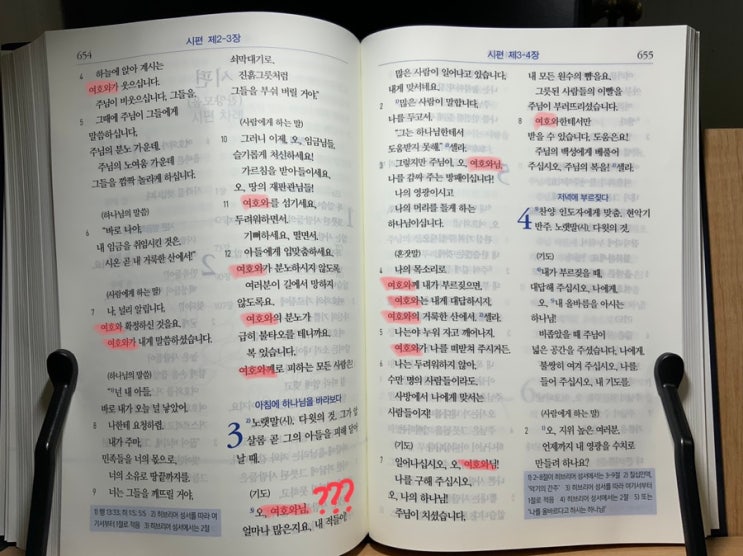 654
시편 제2-3장
4 하늘에 앉아 계시는
여호와가 웃으십니다.
주님이 비웃으십니다, 그들을.
5 그때에 주님이 그들에게
말씀하십니다.
주님의 분노 가운데
주님의 노여움 가운데
그들을 깜짝 놀라게 하십니다.
(하나님의 말씀)
6 "바로 나야,
내 임금을 취임시킨 것은,
시온 곧 내 거룩한 산에서!"
(사람에게 하는 말)
7 나, 널리 알립니다,
여호와 확정하신 것을요.
여호와가 내게 말씀하셨습니다.
(하나님의 말씀)
"넌 내 아들,
바로 내가 오늘 널 낳았어.
8 나한테 요청하렴,
내가 주마,
민족들을 너의 몫으로,
너의 소유로 땅끝까지를.
9 너는 그들을 깨뜨릴 거야,
1) 행 13:33; 히 1:5; 5:5 2) 히브리어 성서를 따라 여
기서부터 1절로 적음 3) 히브리어 성서에서는 2절
쇠막대기로,
진흙그릇처럼
그들을 부숴 버릴 거야."
(사람에게 하는 말)
10 그러니 이제, 오, 임금님들,
슬기롭게 처신하세요!
가르침을 받아들이세요,
오, 땅의 재판관님들!
11 여호와를 섬기세요,
두려워하면서.
기뻐하세요, 떨면서.
12 아들에게 입맞춤하세요.
여호와가 분노하시지 않도록
여러분이 길에서 망하지
않도록요.
여호와의 분노가
급히 불타오를 테니까요.
복 있습니다,
여호와께로 피하는 모든 사람은!
아침에 하나님을 바라보다
3 2)노랫말(시). 다윗의 것. 그가 압
살롬 곧 그의 아들을 피해 달아
날 때.
(기도)
3)오, 여호와님, ???
얼마나 많은지요, 내 적들이!
시편 제3-4장
655
많은 사람이 일어나고 있습니다,
내게 맞서네요.
2 4)많은 사람이 말합니다,
나를 두고서.
"그는 하나님한테서
도움받지 못해." 5)셀라.
3 그렇지만 주님이, 오, 여호와님,
나를 감싸 주는 방패이십니다!
나의 영광이시고
나의 머리를 들게 하는
하나님이십니다.
(혼잣말)
4 나의 목소리로
여호와께 내가 부르짖으면,
여호와는 내게 대답하시지,
여호와의 거룩한 산에서. 셀라.
5 나는야 누워 자고 깨어나지.
여호와가 나를 떠받쳐 주시거든.
6 나는 두려워하지 않아,
수만 명의 사람들이라도,
사방에서 나에게 맞서는
사람들이지!
(기도)
7 일어나십시오, 오, 여호와님!
나를 구해 주십시오,
오, 나의 하나님!
주님이 치셨습니다,
내 모든 원수의 뺨을요.
그릇된 사람들의 이빨을
주님이 부러뜨리셨습니다.
8 여호와한테서만
받을 수 있습니다, 도움은요!
주님의 백성에게 베풀어
주십시오, 주님의 복을! 셀라.
저녁에 부르짖다
4 찬양 인도자에게 맞춤. 현악기
반주. 노랫말(시). 다윗의 것.
(기도)
내가 부르짖을 때,
대답해 주십시오, 나에게.
오, 내 올바름을 아시는
하나님!
비좁았을 때 주님이
넓은 공간을 주셨습니다, 나에게.
불쌍히 여겨 주십시오, 나를.
들어 주십시오, 내 기도를.
(사람에게 하는 말)
2 오, 지위 높은 여러분,
언제까지 내 영광을 수치로
만들려 하나요?